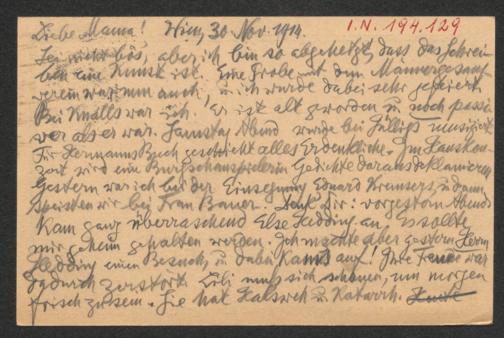 I.N. 194.129
Liebe Mama! Wien, 30. Nov. 1914.
Sei nicht bös, aber ich bin so abgehetzt, dass das Schrei-
ben eine Kunst ist. Eine Probe mit dem Männergesang-
verein war nun auch, u. ich wurde dabei sehr gefeiert
Bei Knolls war ich. Er ist alt geworden u. noch passi-
ver als er war. Samstag Abend wurde bei musiziert
Für Hermanns Buch geschieht alles Erdenkliche. Im Hauskon-
zert wird eine Burgschauspielerin Gedichte daraus deklamieren
Gestern war ich bei der Einsegnung Eduard Kremsers, u. dann
speisten wir bei Frau Bauer. Denk Dir: vorgestern Abends
kam ganz überraschend Else an. Es sollte
mir geheim gehalten werden. Ich machte aber gestern Herrn
einen Besuch, u. dabei kams auf! Ihre Freude war
dadurch zerstört. Lili muss sich schonen, um morgen
frisch zu sein. Sie hat Halsweh u. Katarrh.